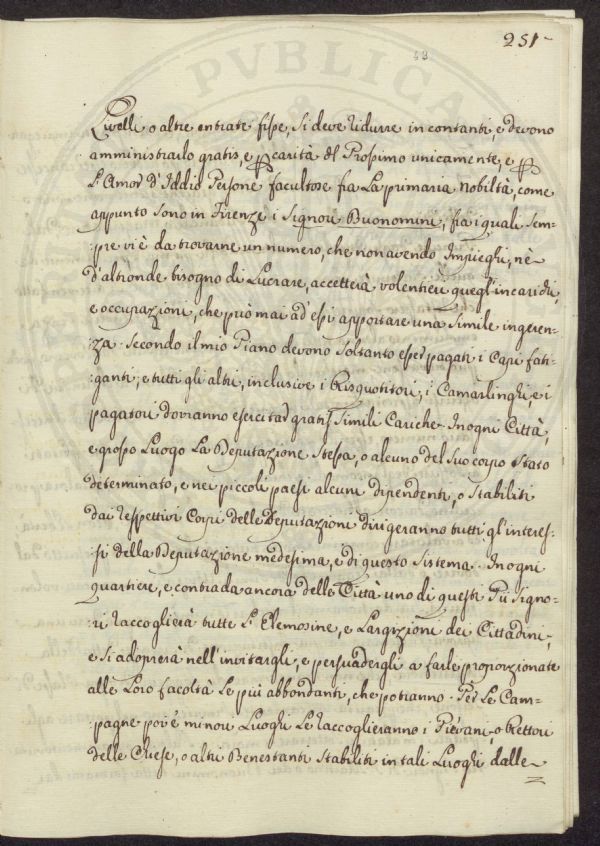 251
PVBLICA
Livelli o altre entrate fisse, si deve ridurre in contanti, e devono
amministrarlo gratis, e p carità del Prossimo unicamente, e p
L'Amor d'Iddio Persone facultose fra La primaria nobiltà, come
appunto sono in Firenze i Signori Buonomini, fra i quali sem-
-pre vi è da trovarne un numero, che non avendo Impieghi, nè
d'altronde bisogno di Lucrare, accetterà volentieri quegl'incaridi,
e occupazioni, che può mai ad essi apportare una simile ingeren-
-za. Secondo il mio Piano devono soltanto esser pagati i Capi fati-
-ganti; e tutti gli altri, inclusive i Risquotitori, i Camarlinghi, e i
pagatori dovranno esercitar gratis simili Cariche. In ogni Città,
e grosso Luogo La Deputazione stessa, o alcuno del suo corpo stato
determinato, e nei piccoli paesi alcuni dipendenti, o stabiliti
dai respettivi Corpi delle Deputazioni dirigeranno tutti gl'interes-
-si della Deputazione medesima, e di questo sistema. In ogni
quartiere, e contrada ancora delle Città uno di questi Pii Signo-
-ri raccoglierà tutte L'Elemosine, e Largizioni dei Cittadini,
e si adoprerà nell'invitargli, e persuadergli a farle proporzionate
alle Loro facoltà Le più abbondanti, che potranno. Per Le Cam-
-pagne poi e minori Luoghi Le raccoglieranno i Pievani, o Rettori
delle Chiese, o altri Benestanti stabiliti in tali Luoghi dalle